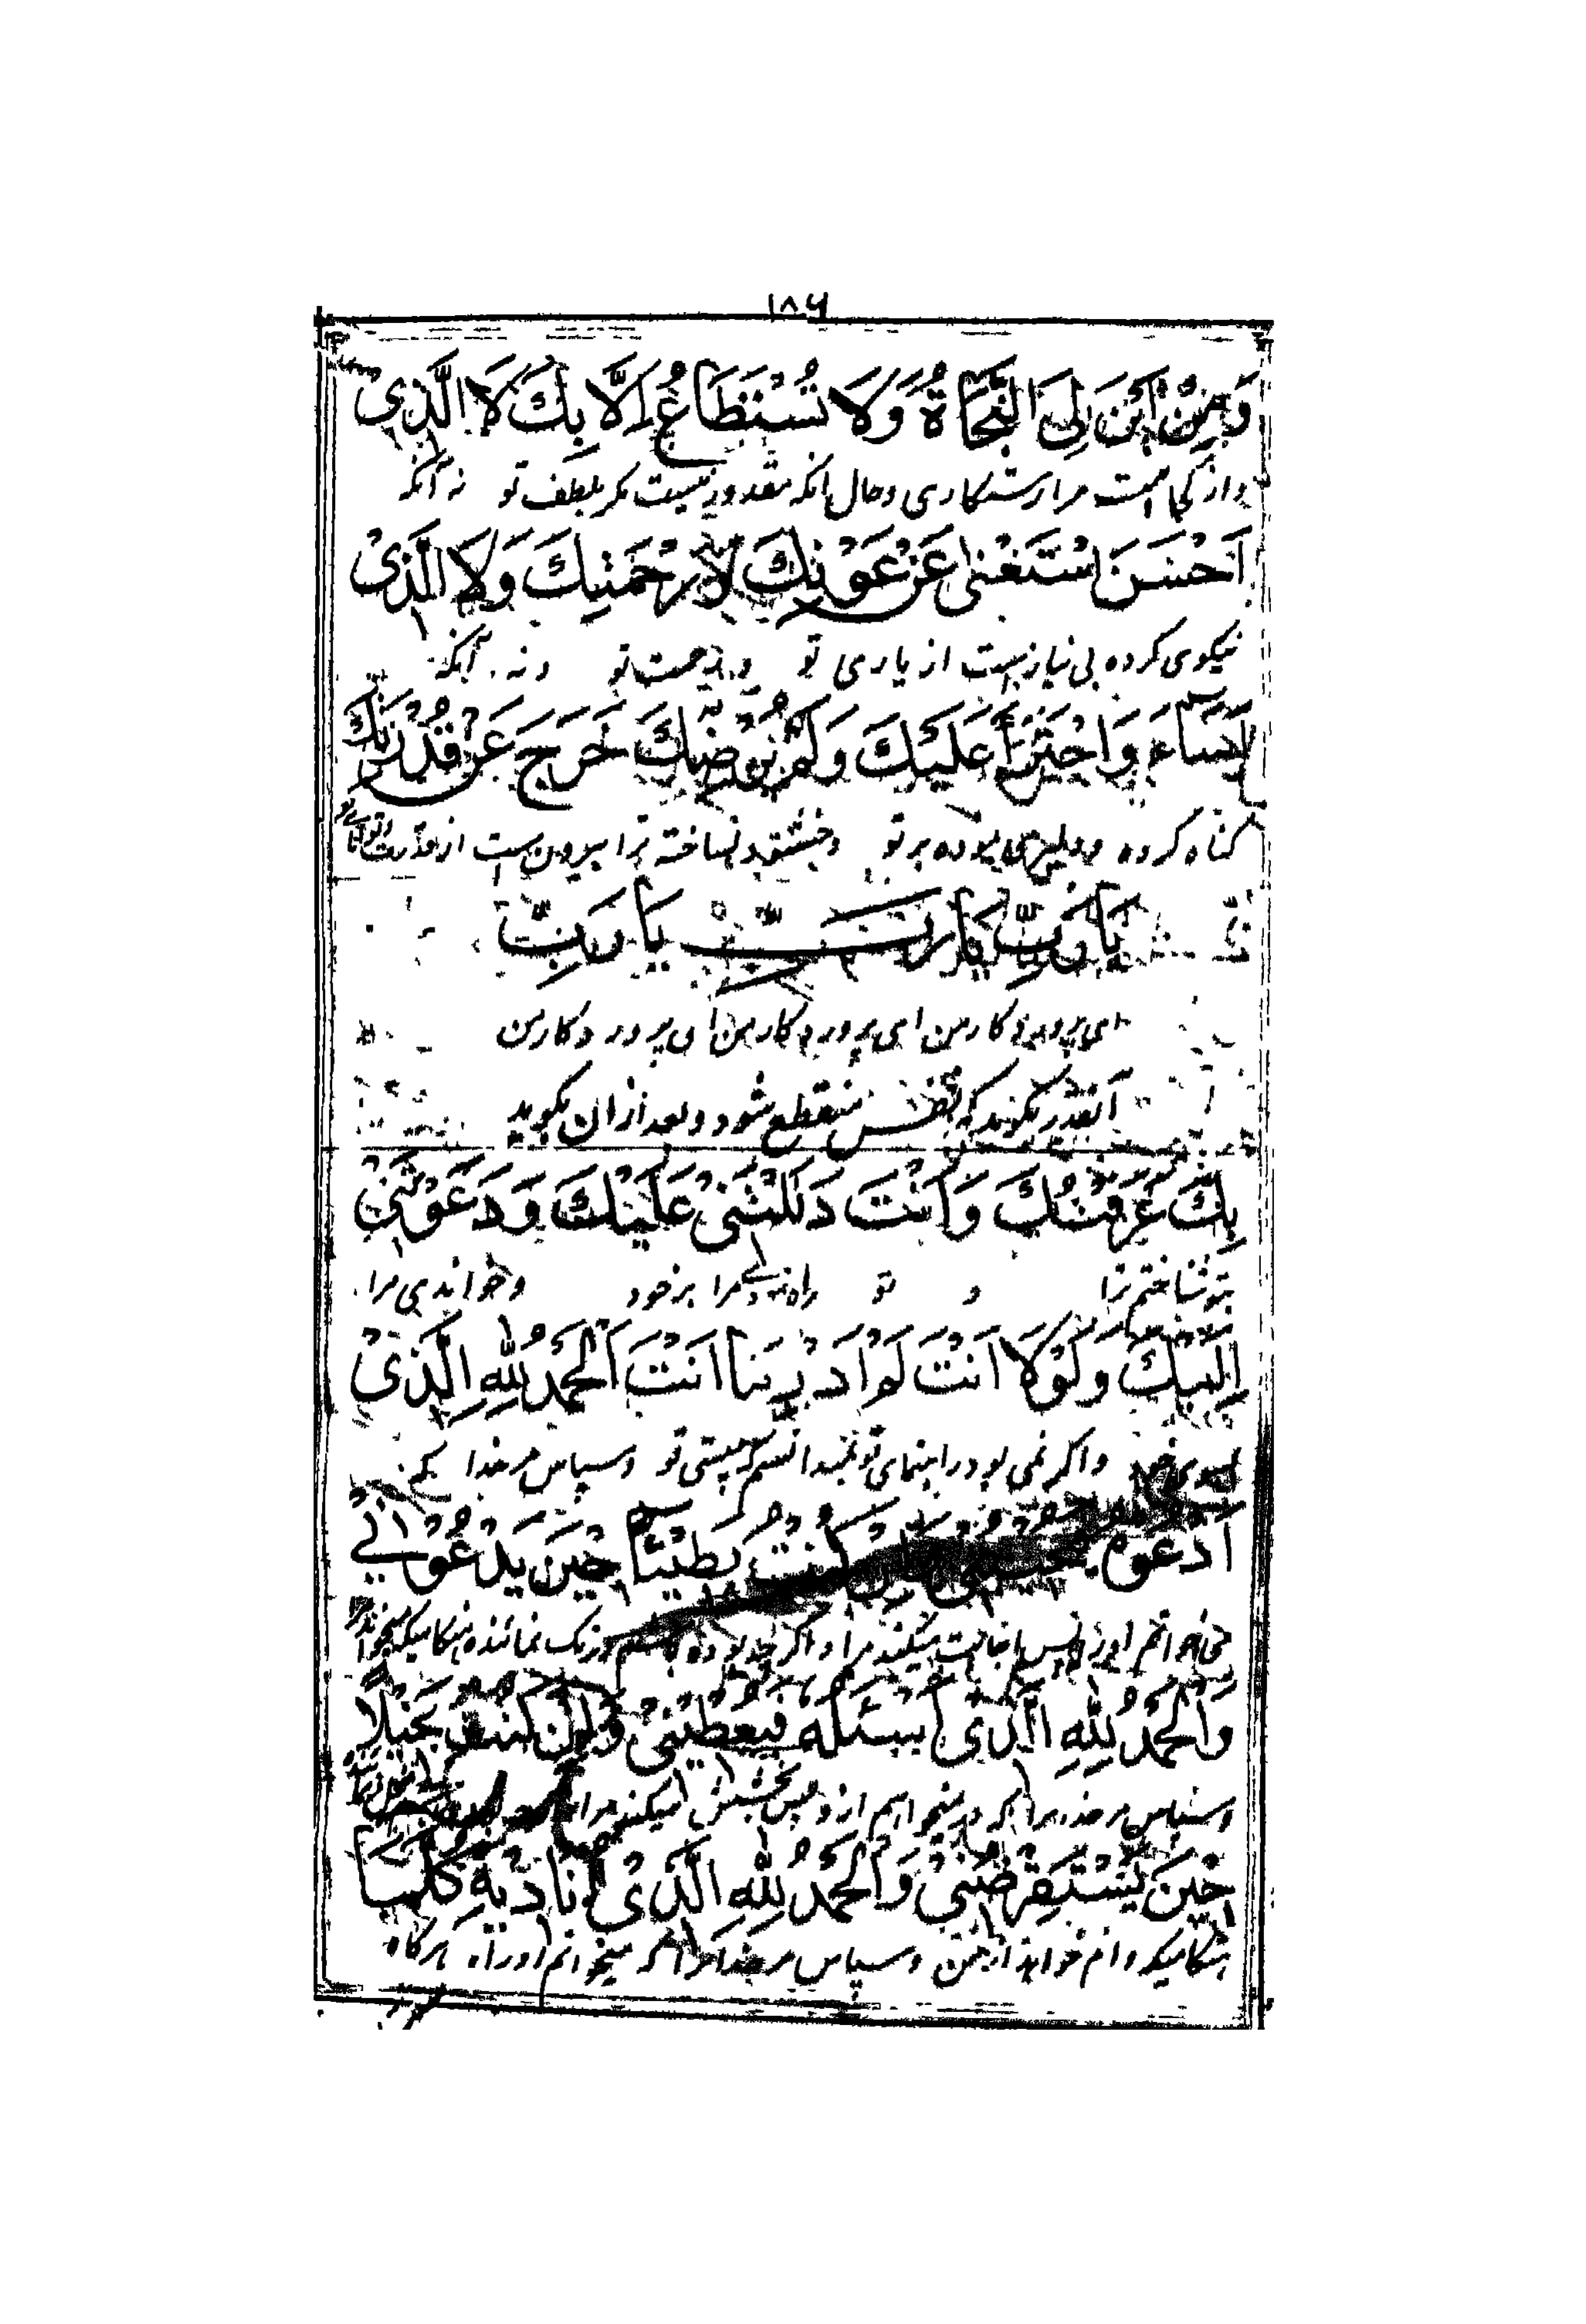 ۱۸۶
وَمِنْ اَيْنَ لِىَ النَّجَاةُ وَلَا تُسْتَطَاعُ اِلَّا بِكَ لَا الَّذِىْ
و از کجا است مرا رستکاری و حال انکه مقدور نیست مکر بلطف تو نه آنکه
اَحْسَنَ اسْتَغْنٰى عَنْ عَوْنِكَ وَرَحْمَتِكَ وَلَا الَّذِىْ
نیکوی کرده بی نیاز است از یاری تو و رحمت تو و نه آنکه
اَسَاءَ وَاجْتَرَأَ عَلَيْكَ وَلَمْ يُرْضِكَ خَرَجَ عَنْ قُدْرَتِكَ
کناه کرده و دلیری نموده بر تو و خشنود نساخته ترا بیرون است از قدرت
يَا رَبِّ يَا رَبِّ يَا رَبِّ
ای پروردکار من ای پروردکار من ای پروردکار من
آنقدر بکوید که نفس منقطع شود و بعد از ان بکوید
بِكَ عَرَفْتُكَ وَاَنْتَ دَلَلْتَنِىْ عَلَيْكَ وَدَعَوْتَنِىْ
بتو شناختم ترا و تو راه نمودی مرا بر خود و خواندی مرا
اِلَيْكَ وَلَوْلَا اَنْتَ لَمْ اَدْرِ مَا اَنْتَ اَلْحَمْدُ لِلّٰهِ الَّذِىْ
بسوی خود و اکر نمی بود راهنمای تو نمیدانستم که چیستی تو و سپاس مر خدا
اَدْعُوهُ كُنْتُ بَطِيْئًا حِيْنَ يَدْعُوْنِىْ
می خوانم او را پس اجابت میکند مرا و اکر چه بوده باشم درنک نمائنده هنکامیکه
وَالْحَمْدُ لِلّٰهِ الَّذِىْ اَسْئَلُهُ فَيُعْطِيْنِىْ وَاِنْ كُنْتُ بَخِيْلًا
و سپاس مر خدا را که میخواهم از و پس بخشش میکند مرا
حِيْنَ يَسْتَقْرِضُنِىْ وَالْحَمْدُ لِلّٰهِ الَّذِىْ اُنَادِيْهِ كُلَّمَا
هنکامیکه وام خواهد از من و سپاس مر خدا را که میخوانم او را هرکاه